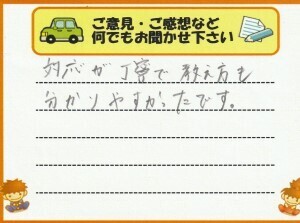 ご意見・ご感想など
何でもお聞かせ下さい
対応が丁寧で教え方も
分かりやすかったです。